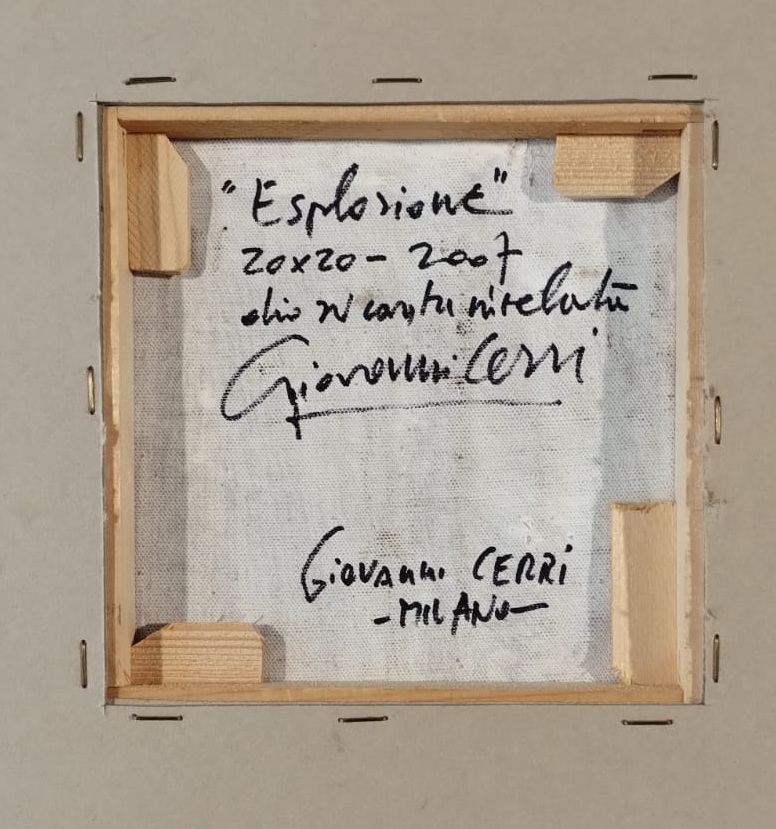 "Esplosione"
20x20 - 2007
olio su carta intelata
Giovanni Cerri
Giovanni CERRi
- MILANO -